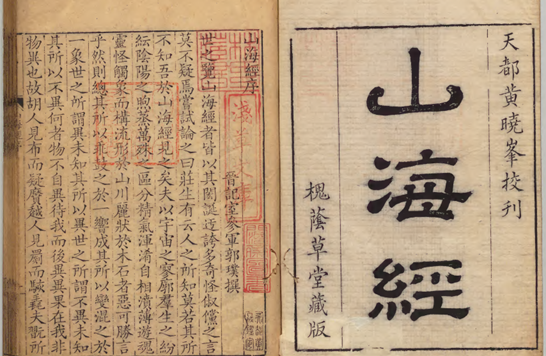 天都黃曉峯挍刊
山海經
槐蔭草堂藏版
山海經序
晉記室參軍郭璞撰
世之覽山海經者皆以其閎誕迂誇多奇怪俶儻之言
莫不疑焉嘗試論之曰莊生有云人之所知莫若其所
不知吾於山海經見之矣夫以宇宙之寥廓羣生之紛
紜陰陽之煦蒸萬殊之區分精氣渾淆自相濆薄遊魂
靈怪觸象而構流形於山川麗狀於木石者惡可勝言
乎然則總其所以乖鼓之於一響成其所以變混之於
一象世之所謂異未知其所以異世之所謂不異未知
其所以不異何者物不自異待我而後異異果在我非
物異也故胡人見布而疑黂越人見罽而駭毳夫翫所
淺草文庫